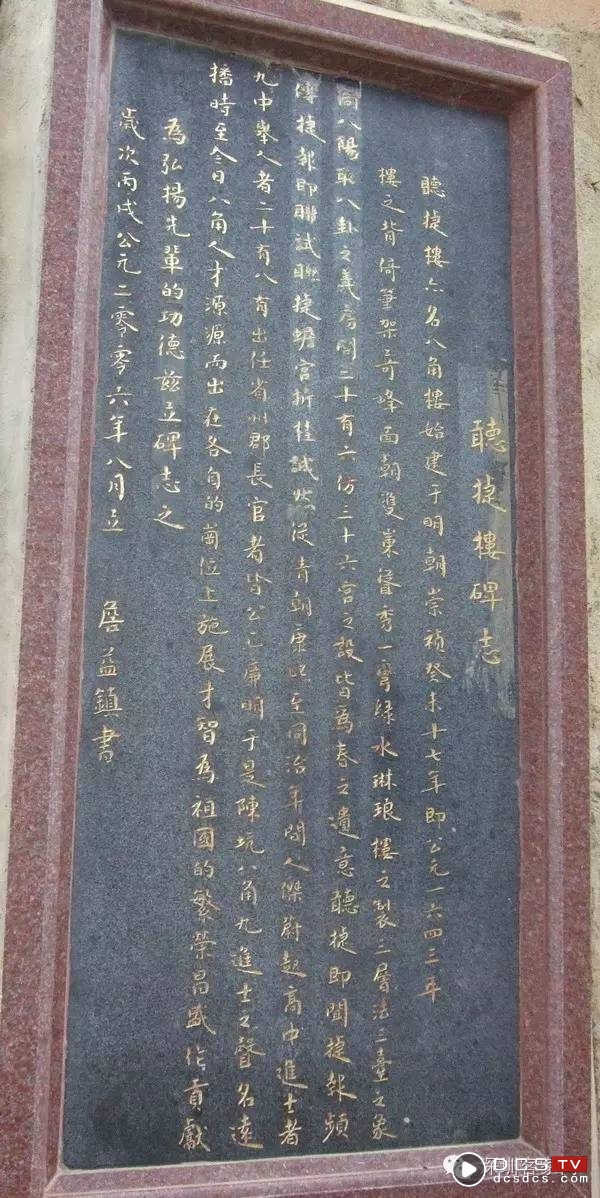 聽捷樓碑志
聽捷樓亦名八角樓始建于明朝崇禎癸未十七年即公元一六四三年
樓之背倚筆架奇峰面朝雙東聳秀一彎绿水琳琅樓之製二層法三臺之象
八陽取八卦之義房間二十有六仿三十六宫之設皆為春之遺意聽捷即聞捷報頻
傳捷報即聯試聯捷蟾宫折桂誠然從清朝康熙至同治年間人傑蔚起高中進士者
九中舉人者二十有八有出任省州郡長官者皆公正廉明于是陳坑八角九進士之聲名遠
播時至今日八角人才源源而出在各自的崗位上施展才智為祖國的繁榮昌盛作貢獻
為弘揚先輩的功德兹立碑志之
歲次丙戌公元二零零六年八月立 詹益鎮書
DCS TV
dcsdcs.com